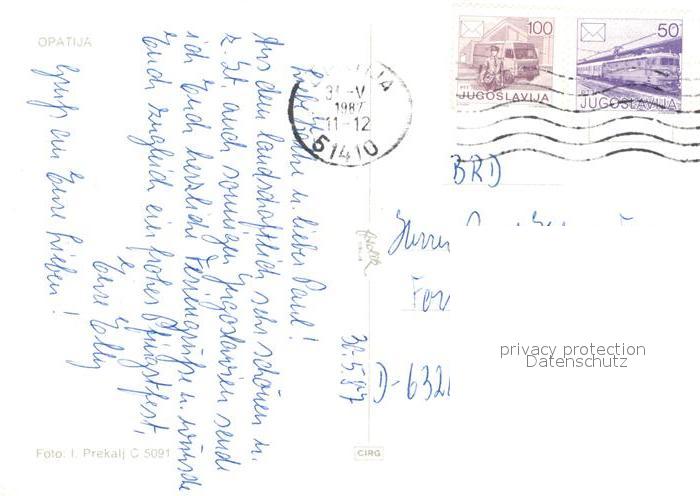 OPATIJA
Liebe u. lieber Paul!
Aus dem landschaftlich sehr schönen u.
z. Zt. auch sonnigen Jugoslawien sende
ich Euch herzliche Feriengrüße u. wünsche
Euch zugleich ein frohes Pfingstfest.
Eure Elly
Gruß an Eure Lieben!
30.5.87
Foto: I. Prekalj C 5091
CIRG
31-V
1987
11-12
51410
100
PTT JUGOSLAVIJA
50
PTT JUGOSLAVIJA
BRD
Herrn
D-632
privacy protection
Datenschutz